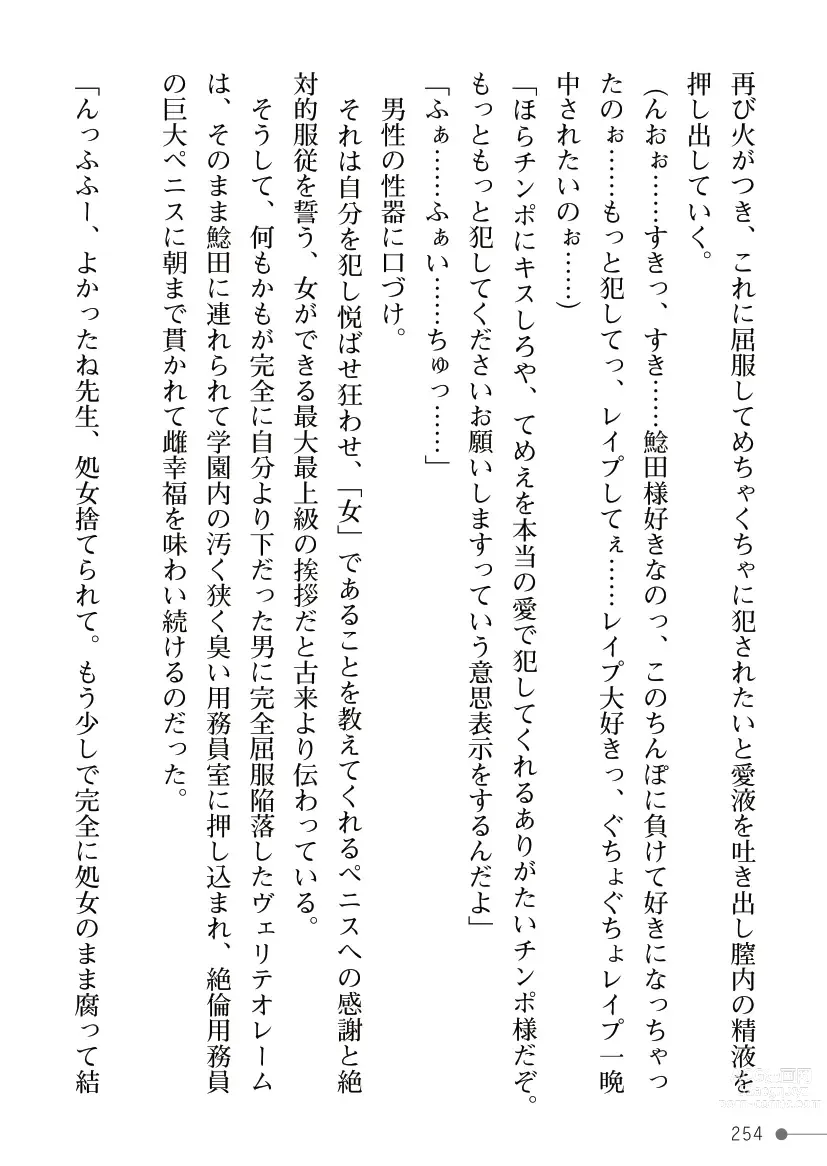 再び火がつき、これに屈服してめちゃくちゃに犯されたいと愛液を吐き出し膣内の精液を
押し出していく。
(んおぉ……すきっ、すき……鯰田様好きなのっ、このちんぽに負けて好きになっちゃっ
たのぉ……もっと犯してっ、レイプしてぇ……レイプ大好きっ、ぐちょぐちょレイプ一晩
中されたいのぉ……)
「ほらチンポにキスしろや、てめえを本当の愛で犯してくれるありがたいチンポ様だぞ。
もっともっと犯してくださいお願いしますっていう意思表示をするんだよ」
「ふぁ……ふぁい……ちゅっ……」
男性の性器に口づけ。
それは自分を犯し悦ばせ狂わせ、「女」であることを教えてくれるペニスへの感謝と絶
対的服従を誓う、女ができる最大最上級の挨拶だと古来より伝わっている。
そうして、何もかもが完全に自分より下だった男に完全屈服陥落したヴェリテオレーム
は、そのまま鯰田に連れられて学園内の汚く狭く臭い用務員室に押し込まれ、絶倫用務員
の巨大ペニスに朝まで貫かれて雌幸福を味わい続けるのだった。
「んっふふー、よかったね先生、処女捨てられて。もう少しで完全に処女のまま腐って結
254